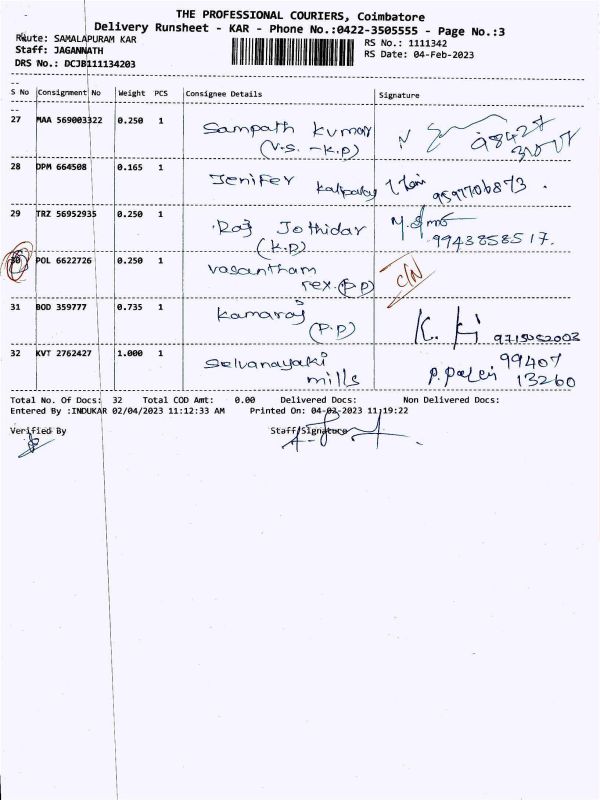 THE PROFESSIONAL COURIERS, Coimbatore
Delivery Runsheet - KAR - Phone No.:0422-3505555 - Page No.:3
Route: SAMALAPURAM KAR
RS No.: 1111342
Staff: JAGANNATH
RS Date: 04-Feb-2023
DRS No.: DCJB111134203
S No Consignment No Weight PCS Consignee Details Signature
27 MAA 569003322 0.250 1 Sampath Kumar
(V.S. - K.P)
28 DPM 664508 0.165 1 Jenifer 9597706873 .
29 TRZ 56952935 0.250 1 Raj Jothidar
(K.P) 9943858517.
30 POL 6622726 0.250 1 vasantham C/N
rex. (P.P)
31 BOD 359777 0.735 1 Kamaraj
(P.P) K. 9715052003
32 KVT 2762427 1.000 1 Selvanayaki 99407
mills 13260
Total No. Of Docs: 32 Total COD Amt: 0.00 Delivered Docs: Non Delivered Docs:
Entered By :INDUKAR 02/04/2023 11:12:33 AM Printed On: 04-02-2023 11:19:22
Verified By Staff Signature